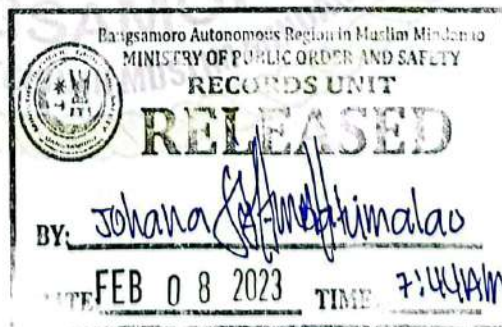 Bangsamoro Autonomous Region in Muslim Mindanao
MINISTRY OF PUBLIC ORDER AND SAFETY
RECORDS UNIT
RELEASED
BY: Johana
DATE FEB 08 2023 TIME 7:44AM